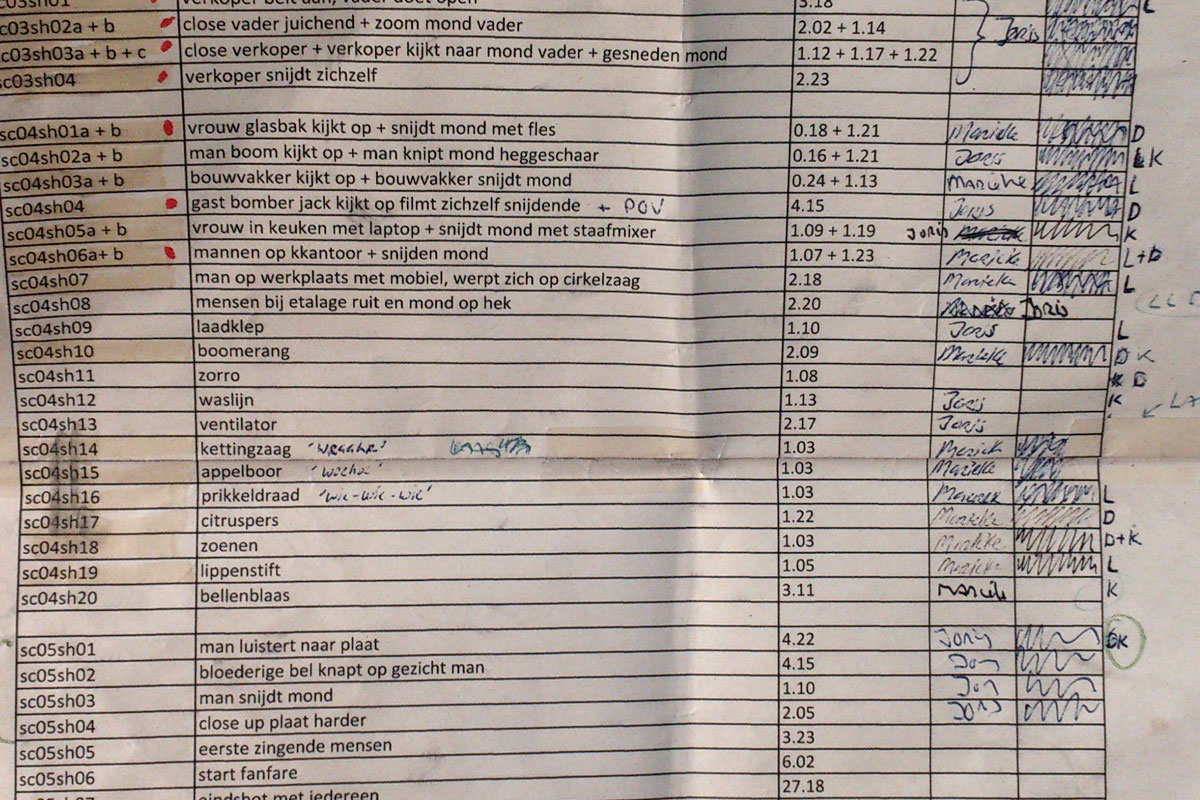 sc03sh01 verkoper belt aan, vader doet open 3.18 L
sc03sh02a + b close vader juichend + zoom mond vader 2.02 + 1.14 Joris
sc03sh03a + b + c close verkoper + verkoper kijkt naar mond vader + gesneden mond 1.12 + 1.17 + 1.22
sc03sh04 verkoper snijdt zichzelf 2.23
sc04sh01a + b vrouw glasbak kijkt op + snijdt mond met fles 0.18 + 1.21 Marieke D
sc04sh02a + b man boom kijkt op + man knipt mond heggeschaar 0.16 + 1.21 Joris K
sc04sh03a + b bouwvakker kijkt op + bouwvakker snijdt mond 0.24 + 1.13 Marieke L
sc04sh04 gast bomber jack kijkt op filmt zichzelf snijdende + POV 4.15 Joris D
sc04sh05a + b vrouw in keuken met laptop + snijdt mond met staafmixer 1.09 + 1.19 Joris K
sc04sh06a+ b mannen op kkantoor + snijden mond 1.07 + 1.23 Marieke L+D
sc04sh07 man op werkplaats met mobiel, werpt zich op cirkelzaag 2.18 Marieke L
sc04sh08 mensen bij etalage ruit en mond op hek 2.20 Joris
sc04sh09 laadklep 1.10 Joris L
sc04sh10 boomerang 2.09 Marieke D K
sc04sh11 zorro 1.08 D
sc04sh12 waslijn 1.13 Joris K
sc04sh13 ventilator 2.17 Joris
sc04sh14 kettingzaag 1.03 Marieke
sc04sh15 appelboor 1.03 Marieke
sc04sh16 prikkeldraad 'wie-wie-wie' 1.03 Marieke L
sc04sh17 citruspers 1.22 Marieke D
sc04sh18 zoenen 1.03 Marieke D+K
sc04sh19 lippenstift 1.05 Marieke L
sc04sh20 bellenblaas 3.11 Marieke K
sc05sh01 man luistert naar plaat 4.22 Joris K
sc05sh02 bloederige bel knapt op gezicht man 4.15
sc05sh03 man snijdt mond 1.10
sc05sh04 close up plaat harder 2.05 Joris
sc05sh05 eerste zingende mensen 3.23
sc05sh06 start fanfare 6.02
eindshot met iedereen 27.18